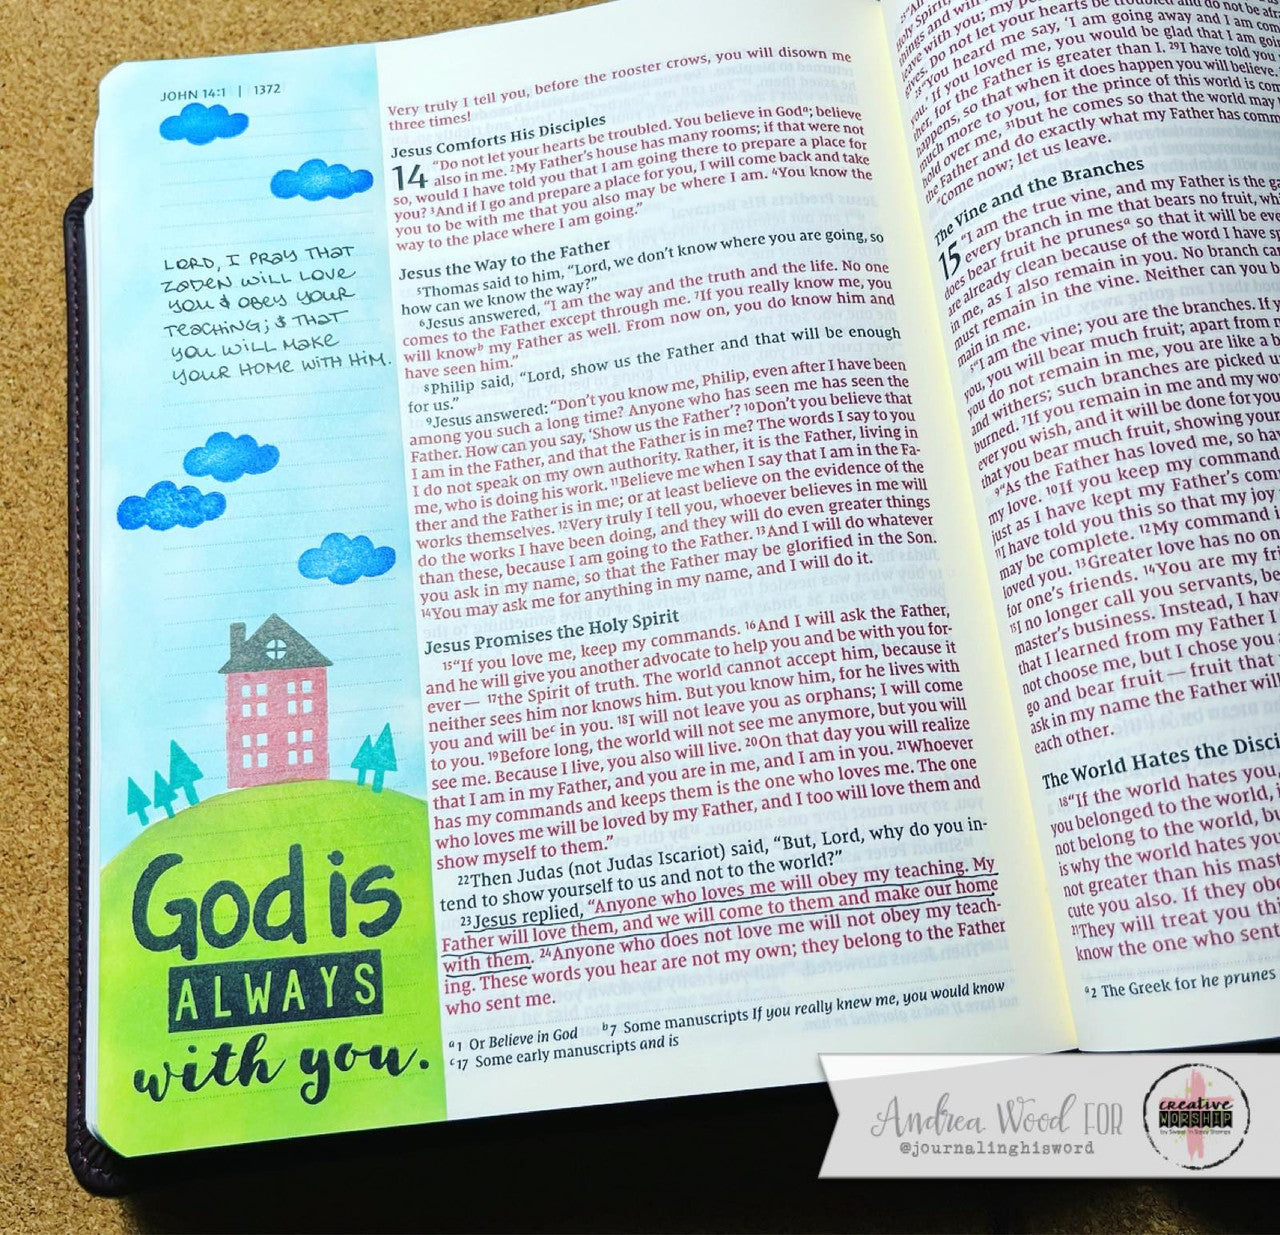 JOHN 14:1 | 1372
LORD, I PRAY THAT
ZADEN WILL LOVE
YOU & OBEY YOUR
TEACHING; & THAT
YOU WILL MAKE
YOUR HOME WITH HIM.
God is
ALWAYS
with you.
Very truly I tell you, before the rooster crows, you will disown me
three times!
Jesus Comforts His Disciples
14 “Do not let your hearts be troubled. You believe in Godᵃ; believe
also in me. ²My Father’s house has many rooms; if that were not
so, would I have told you that I am going there to prepare a place for
you? ³And if I go and prepare a place for you, I will come back and take
you to be with me that you also may be where I am. ⁴You know the
way to the place where I am going.”
Jesus the Way to the Father
⁵Thomas said to him, “Lord, we don’t know where you are going, so
how can we know the way?”
⁶Jesus answered, “I am the way and the truth and the life. No one
comes to the Father except through me. ⁷If you really know me, you
will knowᵇ my Father as well. From now on, you do know him and
have seen him.”
⁸Philip said, “Lord, show us the Father and that will be enough
for us.”
⁹Jesus answered: “Don’t you know me, Philip, even after I have been
among you such a long time? Anyone who has seen me has seen the
Father. How can you say, ‘Show us the Father’? ¹⁰Don’t you believe that
I am in the Father, and that the Father is in me? The words I say to you
I do not speak on my own authority. Rather, it is the Father, living in
me, who is doing his work. ¹¹Believe me when I say that I am in the Fa-
ther and the Father is in me; or at least believe on the evidence of the
works themselves. ¹²Very truly I tell you, whoever believes in me will
do the works I have been doing, and they will do even greater things
than these, because I am going to the Father. ¹³And I will do whatever
you ask in my name, so that the Father may be glorified in the Son.
¹⁴You may ask me for anything in my name, and I will do it.
Jesus Promises the Holy Spirit
¹⁵“If you love me, keep my commands. ¹⁶And I will ask the Father,
and he will give you another advocate to help you and be with you for-
ever— ¹⁷the Spirit of truth. The world cannot accept him, because it
neither sees him nor knows him. But you know him, for he lives with
you and will beᶜ in you. ¹⁸I will not leave you as orphans; I will come
to you. ¹⁹Before long, the world will not see me anymore, but you will
see me. Because I live, you also will live. ²⁰On that day you will realize
that I am in my Father, and you are in me, and I am in you. ²¹Whoever
has my commands and keeps them is the one who loves me. The one
who loves me will be loved by my Father, and I too will love them and
show myself to them.”
²²Then Judas (not Judas Iscariot) said, “But, Lord, why do you in-
tend to show yourself to us and not to the world?”
²³Jesus replied, “Anyone who loves me will obey my teaching. My
Father will love them, and we will come to them and make our home
with them. ²⁴Anyone who does not love me will not obey my teach-
ing. These words you hear are not my own; they belong to the Father
who sent me.
ᵃ1 Or Believe in God ᵇ7 Some manuscripts If you really knew me, you would know
ᶜ17 Some early manuscripts and is
Holy Spirit,
things and will
leave with you; my
eyes. Do not let your hearts be troubled and do not be afr
²⁸“You heard me say, ‘I am going away and I am com
you.’ If you loved me, you would be glad that I am goi
ther, for the Father is greater than I. ²⁹I have told you
happens, so that when it does happen you will believe.
much more to you, for the prince of this world is com
hold over me, ³¹but he comes so that the world may
the Father and do exactly what my Father has comm
“Come now; let us leave.
The Vine and the Branches
15 “I am the true vine, and my Father is the ga
every branch in me that bears no fruit, wh
does bear fruit he prunesᵃ so that it will be eve
are already clean because of the word I have sp
in me, as I also remain in you. No branch ca
must remain in the vine. Neither can you b
main in me.
⁵“I am the vine; you are the branches. If y
you, you will bear much fruit; apart from m
you do not remain in me, you are like a b
and withers; such branches are picked u
burned. ⁷If you remain in me and my wo
ever you wish, and it will be done for you
that you bear much fruit, showing your
⁹“As the Father has loved me, so hav
my love. ¹⁰If you keep my command
just as I have kept my Father’s com
¹¹I have told you this so that my joy
may be complete. ¹²My command i
loved you. ¹³Greater love has no on
for one’s friends. ¹⁴You are my fri
¹⁵I no longer call you servants, be
master’s business. Instead, I hav
that I learned from my Father I
not choose me, but I chose you
go and bear fruit — fruit that
ask in my name the Father will
each other.
The World Hates the Disci
¹⁸“If the world hates you,
you belonged to the world, i
not belong to the world, bu
is why the world hates you
not greater than his mast
cute you also. If they obe
²¹They will treat you thi
know the one who sent
ᵃ2 The Greek for he prunes
Andrea Wood FOR
@journalinghisword
creative
WORSHIP
by Sweet 'n Sassy Stamps